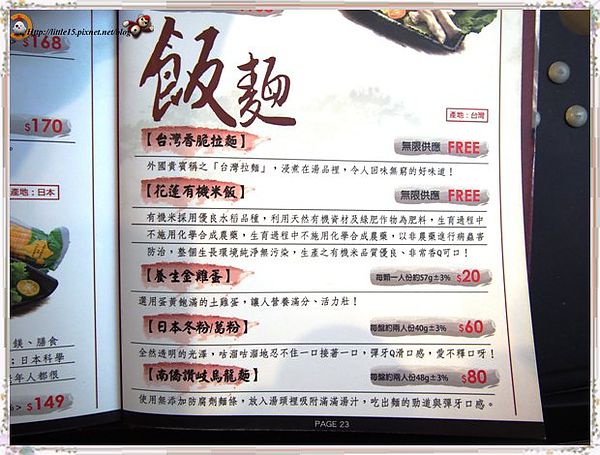 http://little15.pixnet.net/blog
$168
$170
產地：日本
鎂、膳食
：日本科學
年人都很
$149
飯麵
產地：台灣
【台灣香脆拉麵】 無限供應 FREE
外國貴賓稱之「台灣拉麵」，浸煮在湯品裡，令人回味無窮的好味道！
【花蓮有機米飯】 無限供應 FREE
有機米採用優良水稻品種，利用天然有機資材及綠肥作物為肥料，生育過程中
不施用化學合成農藥，生育過程中不施用化學合成農藥，以非農藥進行病蟲害
防治，整個生長環境純淨無污染，生產之有機米品質優良、非常香Q可口！
【養生金雞蛋】 每顆一人份約57g±3% $20
選用蛋黃飽滿的土雞蛋，讓人營養滿分、活力壯！
【日本冬粉/葛粉】 每盤約兩人份40g±3% $60
全然透明的光澤，咕溜咕溜地忍不住一口接著一口，彈牙Q滑口感，愛不釋口呀！
【南僑讚岐烏龍麵】 每盤約兩人份48g±3% $80
使用無添加防腐劑麵條，放入湯頭裡吸附滿滿湯汁，吃出麵的勁道與彈牙口感。
PAGE 23